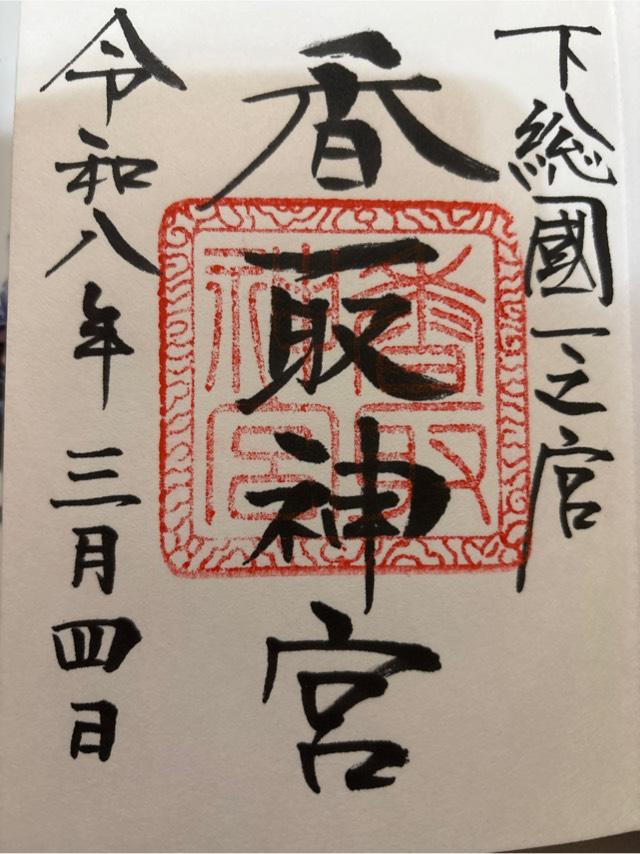 下総國一之宮
香取神宮
香取神宮
令和八年三月四日